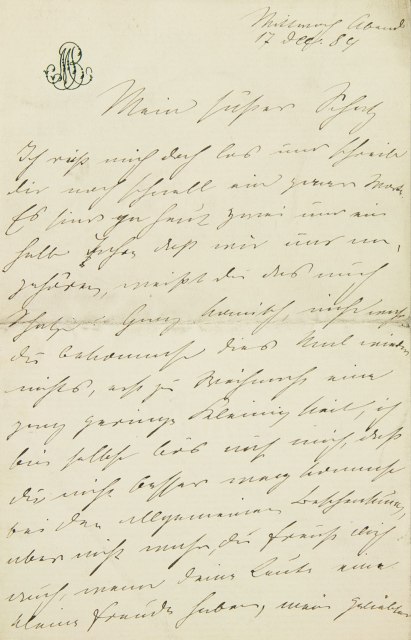 Mittwoch Abend
17 Dez. 84
Mein süßer Schatz
Ich reiß mich doch los und schreibe
dir noch schnell ein paar Worte
Es sind ja heut zwei und ein
halb Jahre daß wir uns an-
gehören, weißt du das noch
Schatz Ganz komisch, nicht wahr
du bekommst dies Mal wieder
nichts, erst zu Weihnacht eine
ganz geringe Kleinigkeit, ich
bin selbst bös auf mich, daß
du nicht besser weg kommst
bei der allgemeinen Bescheerung,
aber nicht wahr, du freust dich
auch, wenn deine Leute eine
kleine Freude haben, mein Geliebter